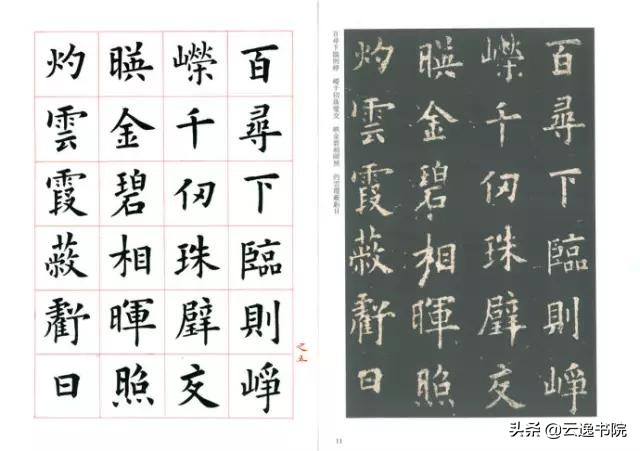 百尋下臨則崢
嶸千仞珠璧交
暎金碧相暉照
灼雲霞蔽虧日
百尋下臨則崢 嶸千仞珠璧交 映金碧相暉照 灼雲霞蔽虧日
百尋下臨則崢
嶸千仞珠璧交
暎金碧相暉照
灼雲霞蔽虧日
之五
11
头条 @云逸书院